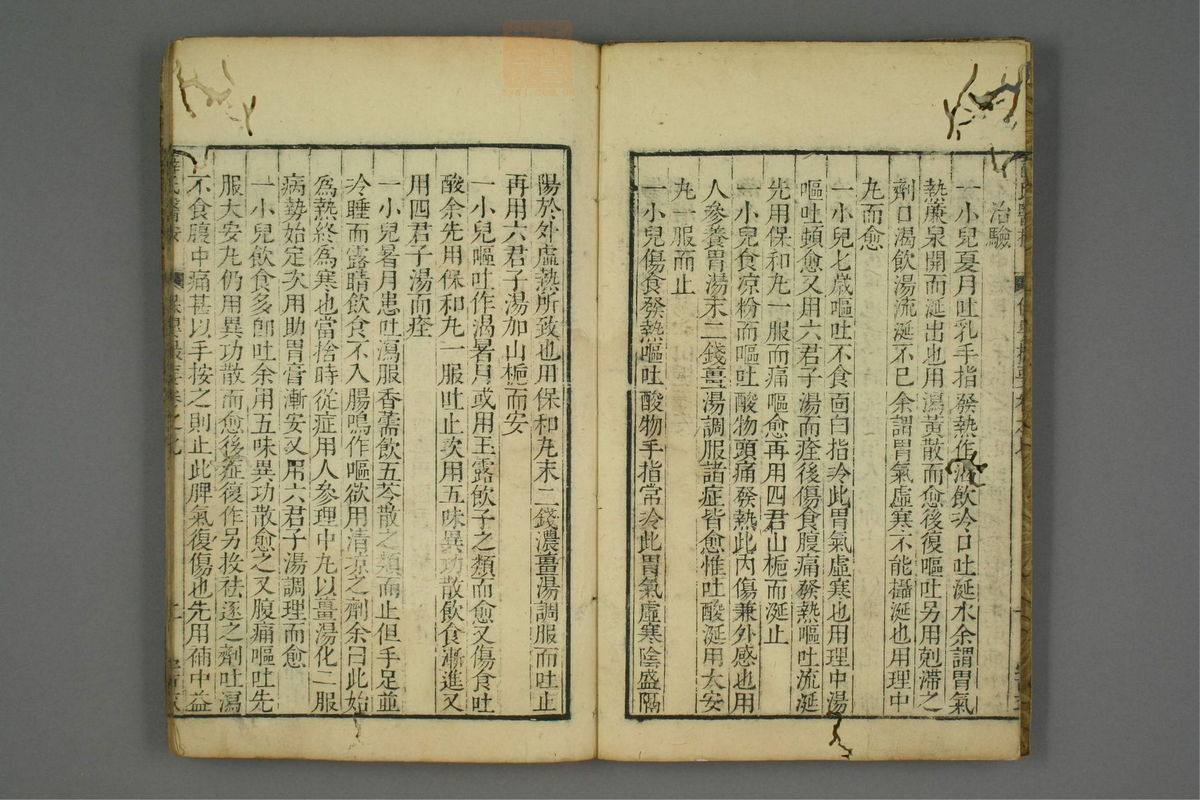 治驗
一小兒夏月吐乳手指發熱作渴飲冷口吐涎水余謂胃氣
熱廉泉開而涎出也用瀉黃散而愈後復嘔吐另用剋滯之
劑口渴飲湯流涎不已余謂胃氣虛寒不能攝涎也用理中
丸而愈
一小兒七歲嘔吐不食面白指冷此胃氣虛寒也用理中湯
嘔吐頓愈又用六君子湯而痊後傷食腹痛發熱嘔吐流涎
先用保和丸一服而痛嘔愈再用四君山梔而涎止
一小兒食凉粉而嘔吐酸物頭痛發熱此內傷兼外感也用
人參養胃湯末二錢薑湯調服諸症皆愈惟吐酸涎用大安
丸一服而止
一小兒傷食發熱嘔吐酸物手指常冷此胃氣虛寒陰盛隔
陽於外虛熱所致也用保和丸末二錢濃薑湯調服而吐止
再用六君子湯加山梔而安
一小兒嘔吐作渴暑月或用玉露飲子之類而愈又傷食吐
酸余先用保和丸一服吐止次用五味異功散飲食漸進又
用四君子湯而痊
一小兒暑月患吐瀉服香薷飲五苓散之類而止但手足並
冷睡而露睛飲食不入腸鳴作嘔欲用清凉之劑余曰此始
爲熱終爲寒也當捨時從症用人參理中丸以薑湯化二服
病勢始定次用助胃膏漸安又用六君子湯調理而愈
一小兒飲食多卽吐余用五味異功散愈之又腹痛嘔吐先
服大安丸仍用異功散而愈後症復作另投祛逐之劑吐瀉
不食腹中痛甚以手按之則止此脾氣復傷也先用補中益